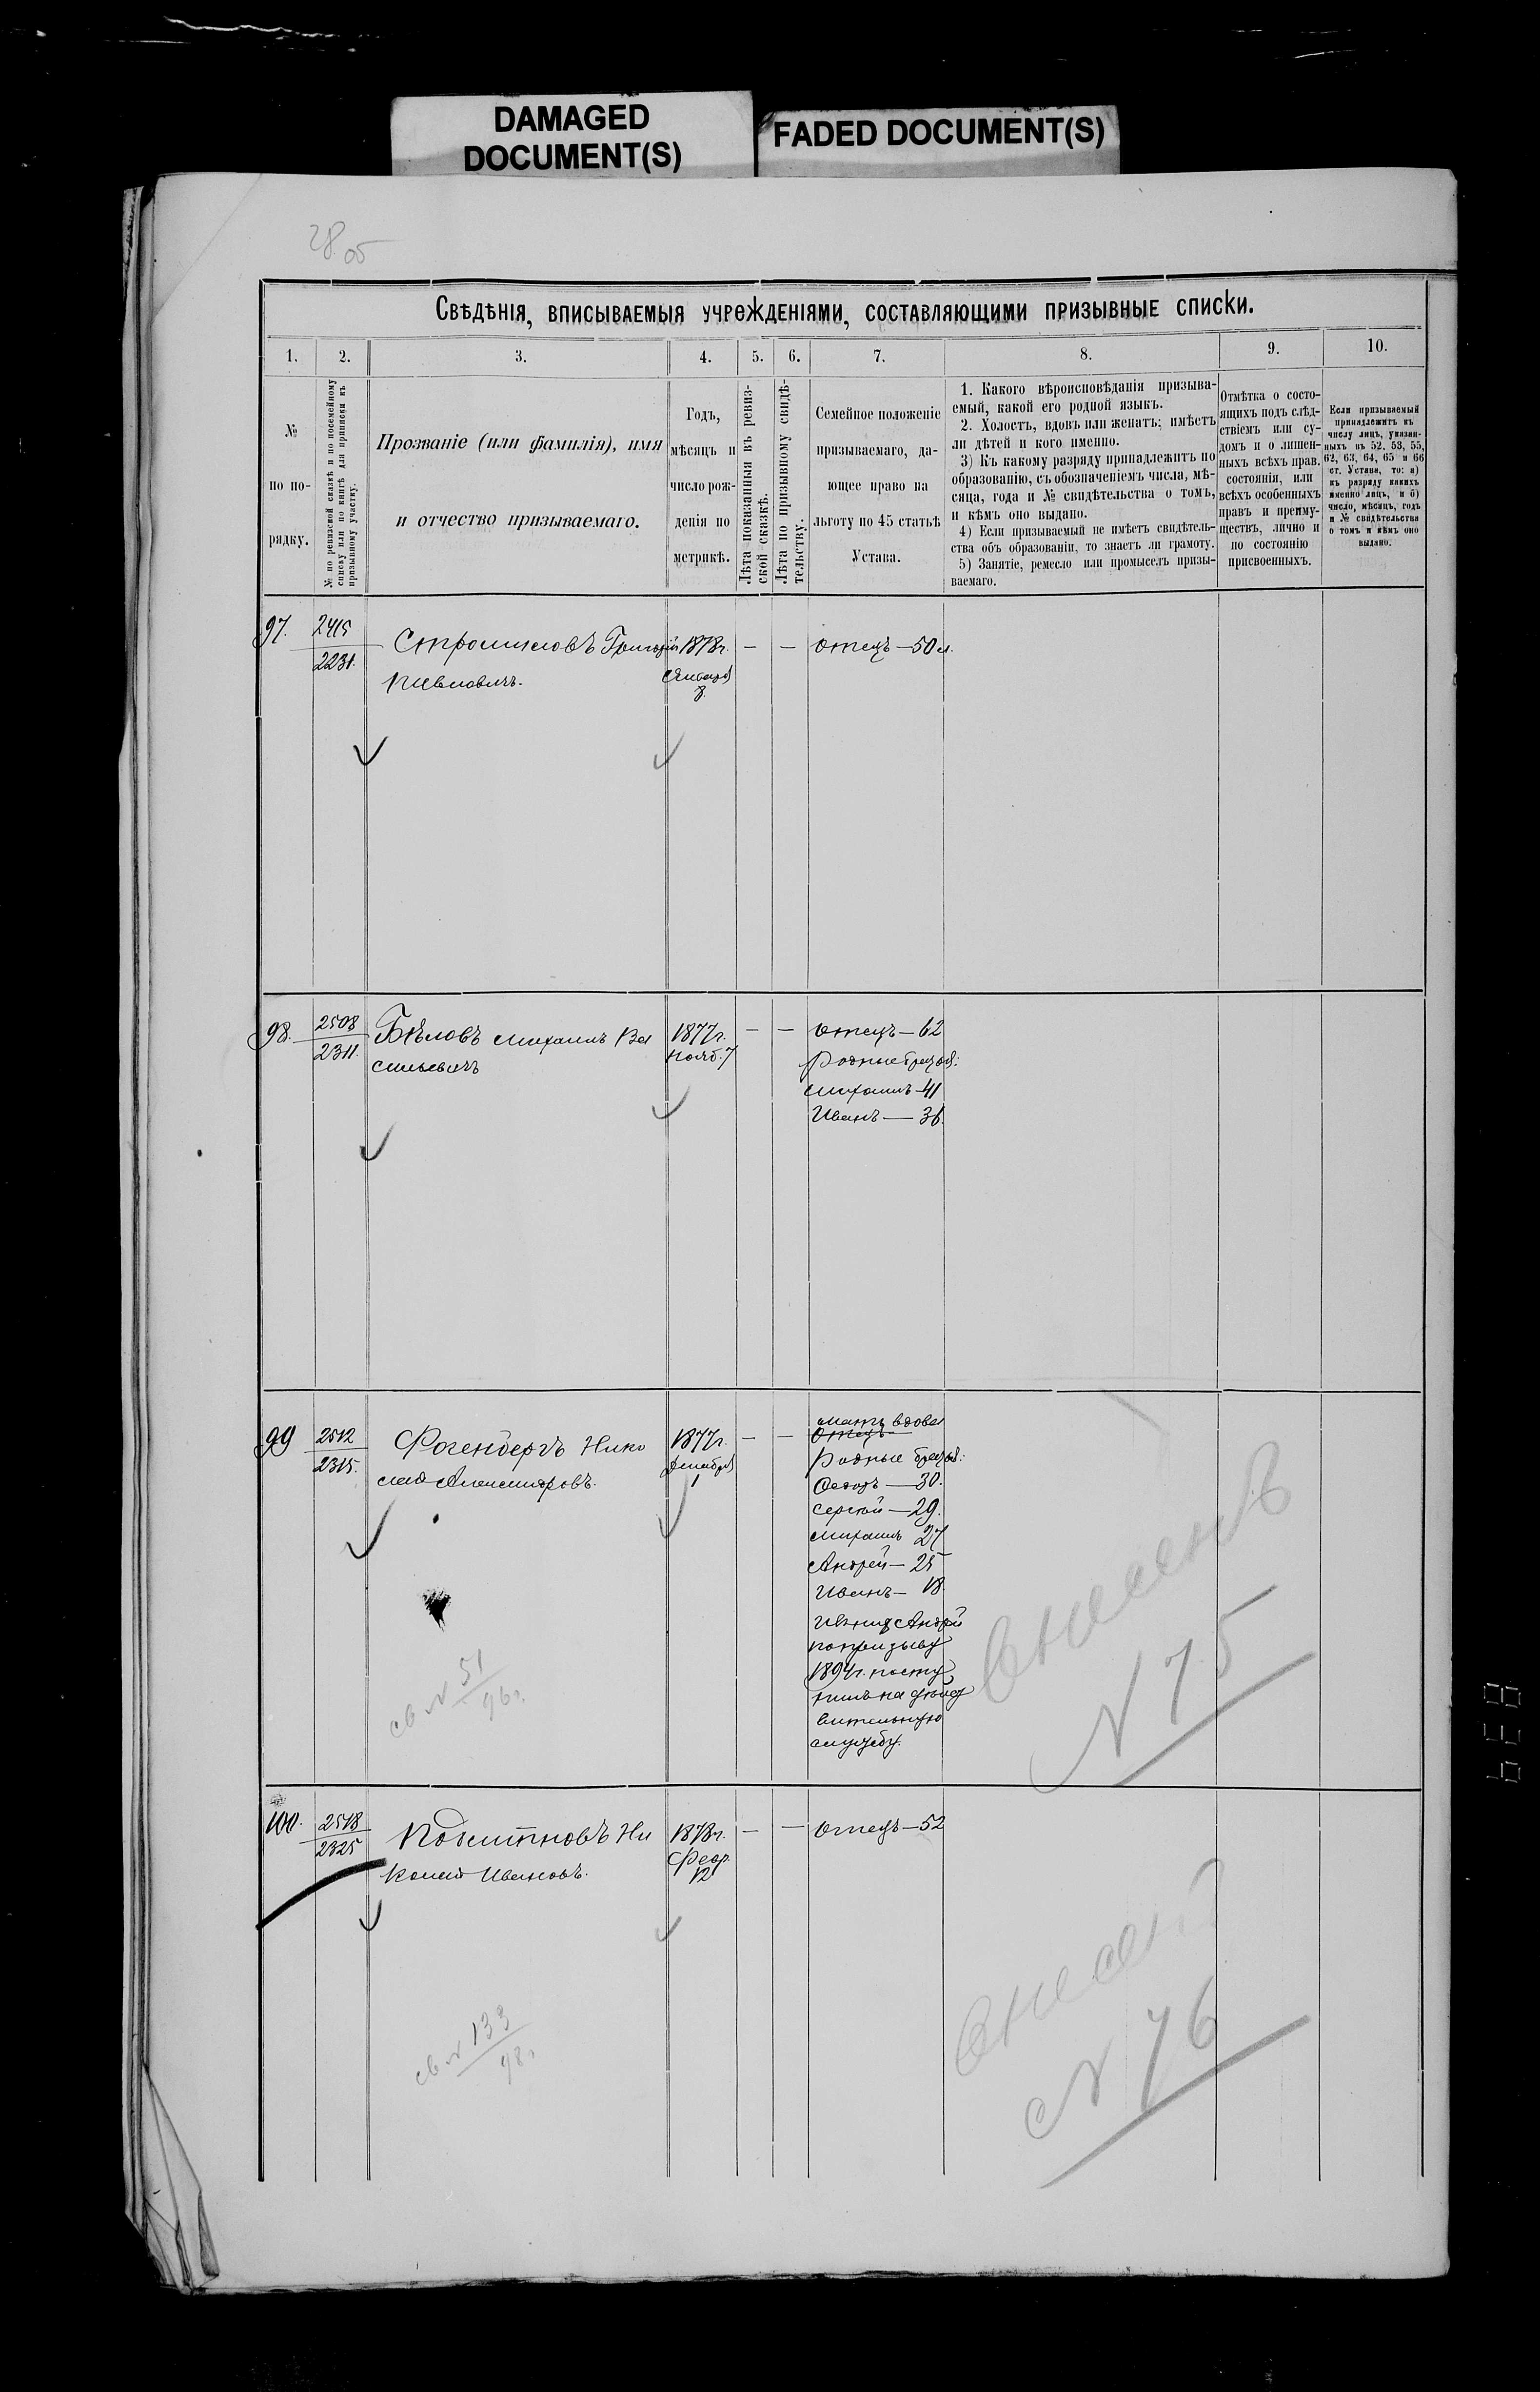 DAMAGED
DOCUMENT(S)
FADED DOCUMENT(S)
28 об
Свѣдѣнія, вписываемыя учрежденіями, составляющими призывные списки.
1.
2.
3.
4.
5.
6.
7.
8.
9.
10.
№
по по-
рядку.
№ по ревизской сказкѣ и по посемейному
списку или по книгѣ для приписки къ
призывному участку.
Прозваніе (или фамилія), имя
и отчество призываемаго.
Годъ,
мѣсяцъ и
число рож-
денія по
метрикѣ.
Лѣта показанныя въ ревиз-
ской сказкѣ.
Лѣта по призывному свидѣ-
тельству.
Семейное положеніе
призываемаго, да-
ющее право на
льготу по 45 статьѣ
Устава.
1. Какого вѣроисповѣданія призыва-
емый, какой его родной языкъ.
2. Холостъ, вдовъ или женатъ; имѣетъ
ли дѣтей и кого именно.
3) Къ какому разряду принадлежитъ по
образованію, съ обозначеніемъ числа, мѣ-
сяца, года и № свидѣтельства о томъ,
и кѣмъ оно выдано.
4) Если призываемый не имѣетъ свидѣтель-
ства объ образованіи, то знаетъ ли грамоту.
5) Занятіе, ремесло или промыселъ призы-
ваемаго.
Отмѣтка о состо-
ящихъ подъ слѣд-
ствіемъ или су-
домъ и о лишен-
ныхъ всѣхъ прав.
состоянія, или
всѣхъ особенныхъ
правъ и преиму-
ществъ, лично и
по состоянію
присвоенныхъ.
Если призываемый
принадлежитъ къ
числу лицъ, указан-
ныхъ въ 52, 53, 55,
62, 63, 64, 65 и 66
ст. Устава, то: а)
къ разряду какихъ
именно лицъ, и б)
число, мѣсяцъ, годъ
и № свидѣтельства
о томъ и кѣмъ оно
выдано.
97.
2415
2231.
Григорій
Павловичъ.
1878г.
Января
— —
отецъ — 50 л.
98.
2508
2311.
Бѣловъ Михаилъ Ва
сильевичъ
1877г.
Нояб. 7
— —
отецъ — 62
Родные братья:
Михаилъ — 41
Иванъ — 36.
99
2512
2315.
Фогенбергъ Нико
лай Александровъ.
1877г.
Декабря
1
— —
мать вдова
отецъ
Родные братья:
Ѳедоръ — 30.
Сергѣй — 29.
Михаилъ 27
Андрей — 25
Иванъ — 18.
Андрей
по призыву
1894г. посту
пилъ на дѣйст
вительную
службу.
св № 51
96г.
Внесенъ
№ 75
100.
2518
2325
Ни
колай Ивановъ.
1878г.
Февр.
12
— —
отецъ — 52
св № 133
98г.
Внесенъ
№ 76
839